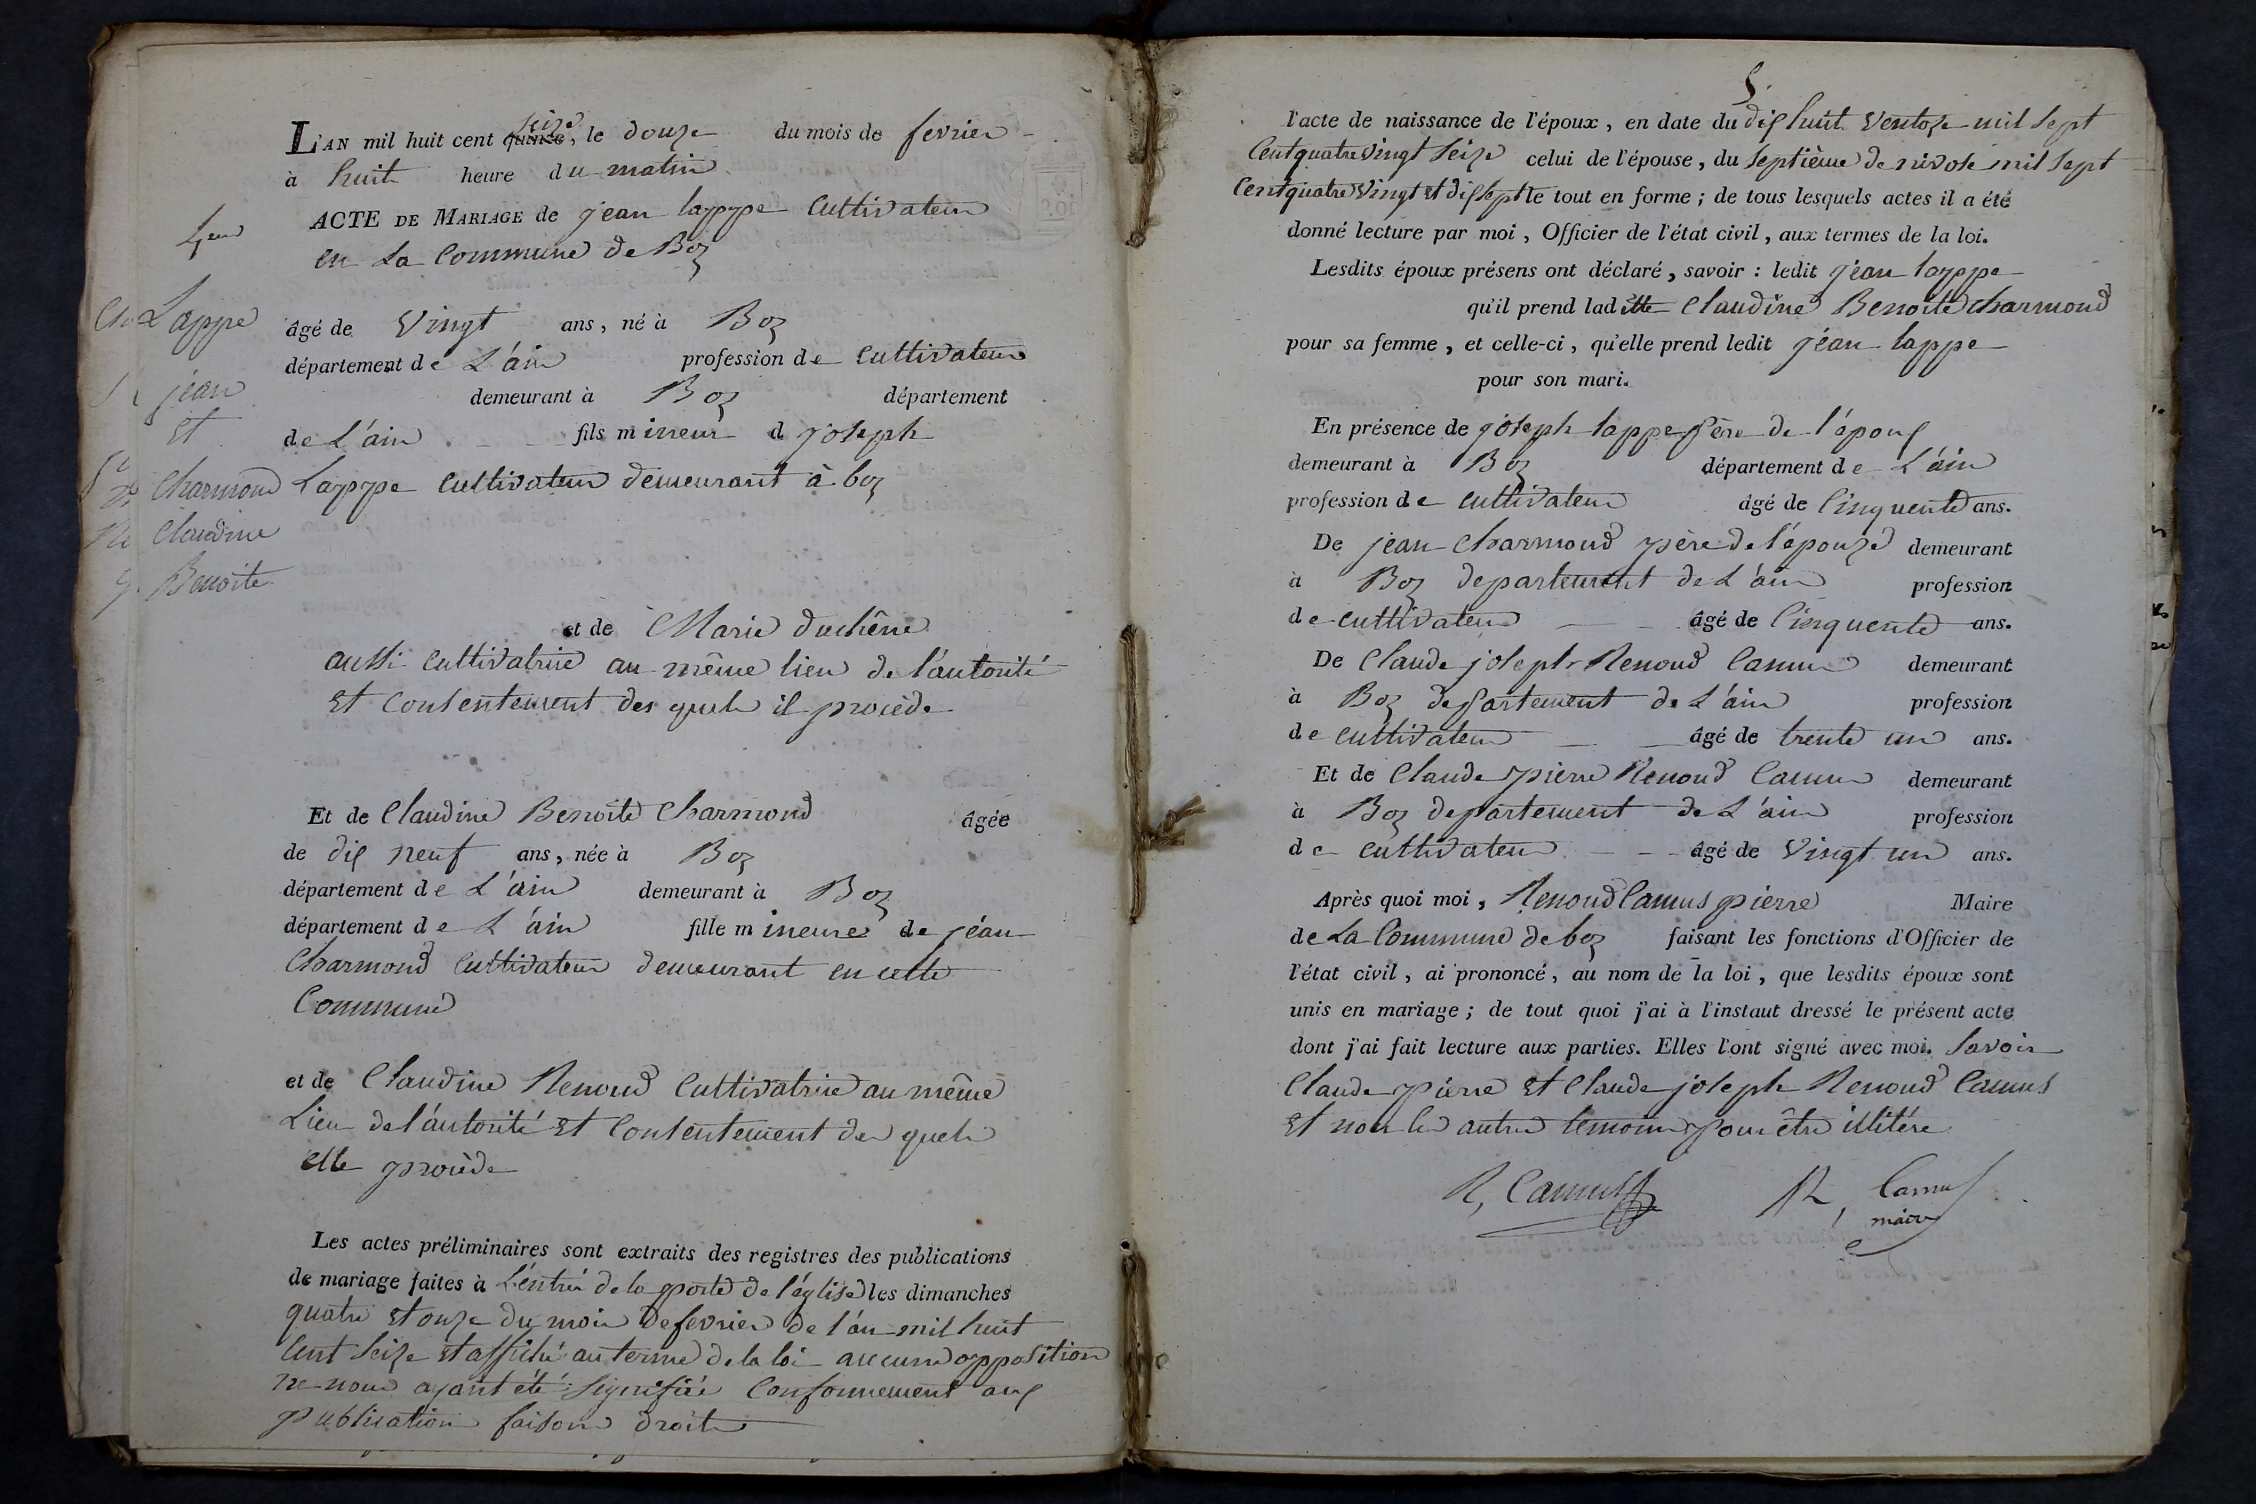 L'AN mil huit cent quinze seize, le douze du mois de fevrier
à huit heure du matin
ACTE DE MARIAGE de jean lappe Cultivateur
en La Commune de Boz
4eme
Lappe
jean
et
Charmond
Claudine
Benoite
âgé de Vingt ans, né à Boz
département de L'ain profession de Cultivateur
demeurant à Boz département
de L'ain fils mineur d joseph
Lappe Cultivateur demeurant à boz
et de Marie duchêne
aussi Cultivatrice au même lieu de l'autorité
Et Consentement des quels il procède
Et de Claudine Benoite Charmond âgée
de dix neuf ans, née à Boz
département de L'ain demeurant à Boz
département de L'ain fille mineure de jéan
Charmond Cultivateur demeurant en cette
Commune
et de Claudine Renoud Cultivatrice au même
Lieu de l'autorité Et Consentement des quels
elle procède
Les actes préliminaires sont extraits des registres des publications
de mariage faites à L'éntrée de la porte de l'église les dimanches
quatre Et onze du mois de fevrier de l'an mil huit
Cent Seize Et affiché au terme de la loi aucune opposition
ne nous ayant été signifiée Conformement aux
publication faison droit
5.
l'acte de naissance de l'époux, en date du dix huit Ventoze mil sept
Cent quatre Vingt Seize celui de l'épouse, du Septième de nivose mil Sept
Cent quatre Vingt et dix Sept le tout en forme; de tous lesquels actes il a été
donné lecture par moi, Officier de l'état civil, aux termes de la loi.
Lesdits époux présens ont déclaré, savoir : ledit jéan lappe
qu'il prend laditte Claudine Benoite Charmond
pour sa femme, et celle-ci, qu'elle prend ledit jéan lappe
pour son mari.
En présence de joseph lappe père de l'époux
demeurant à Boz département de L'ain
profession de Cultivateur âgé de Cinquente ans.
De jean Charmond père de l'épouze demeurant
à Boz departement de L'ain profession
de Cultivateur âgé de Cinquente ans.
De Claude joseph Renoud Camus demeurant
à Boz departement de L'ain profession
de Cultivateur âgé de trente un ans.
Et de Claude pierre Renoud Camus demeurant
à Boz departement de L'ain profession
de Cultivateur âgé de Vingt un ans.
Après quoi moi, Renoud Camus pierre Maire
de La Commune de boz faisant les fonctions d'Officier de
l'état civil, ai prononcé, au nom de la loi, que lesdits époux sont
unis en mariage; de tout quoi j'ai à l'instaut dressé le présent acte
dont j'ai fait lecture aux parties. Elles l'ont signé avec moi. Savoir
Claude pierre Et Claude joseph Renoud Camus
Et non les autres temoins pour être illitére
R, Camus R, Camus
maire